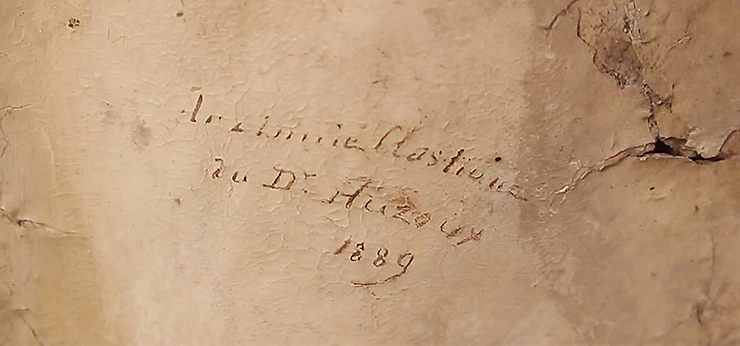 Anatomie Clastique
du Dr. Auzoux
1889